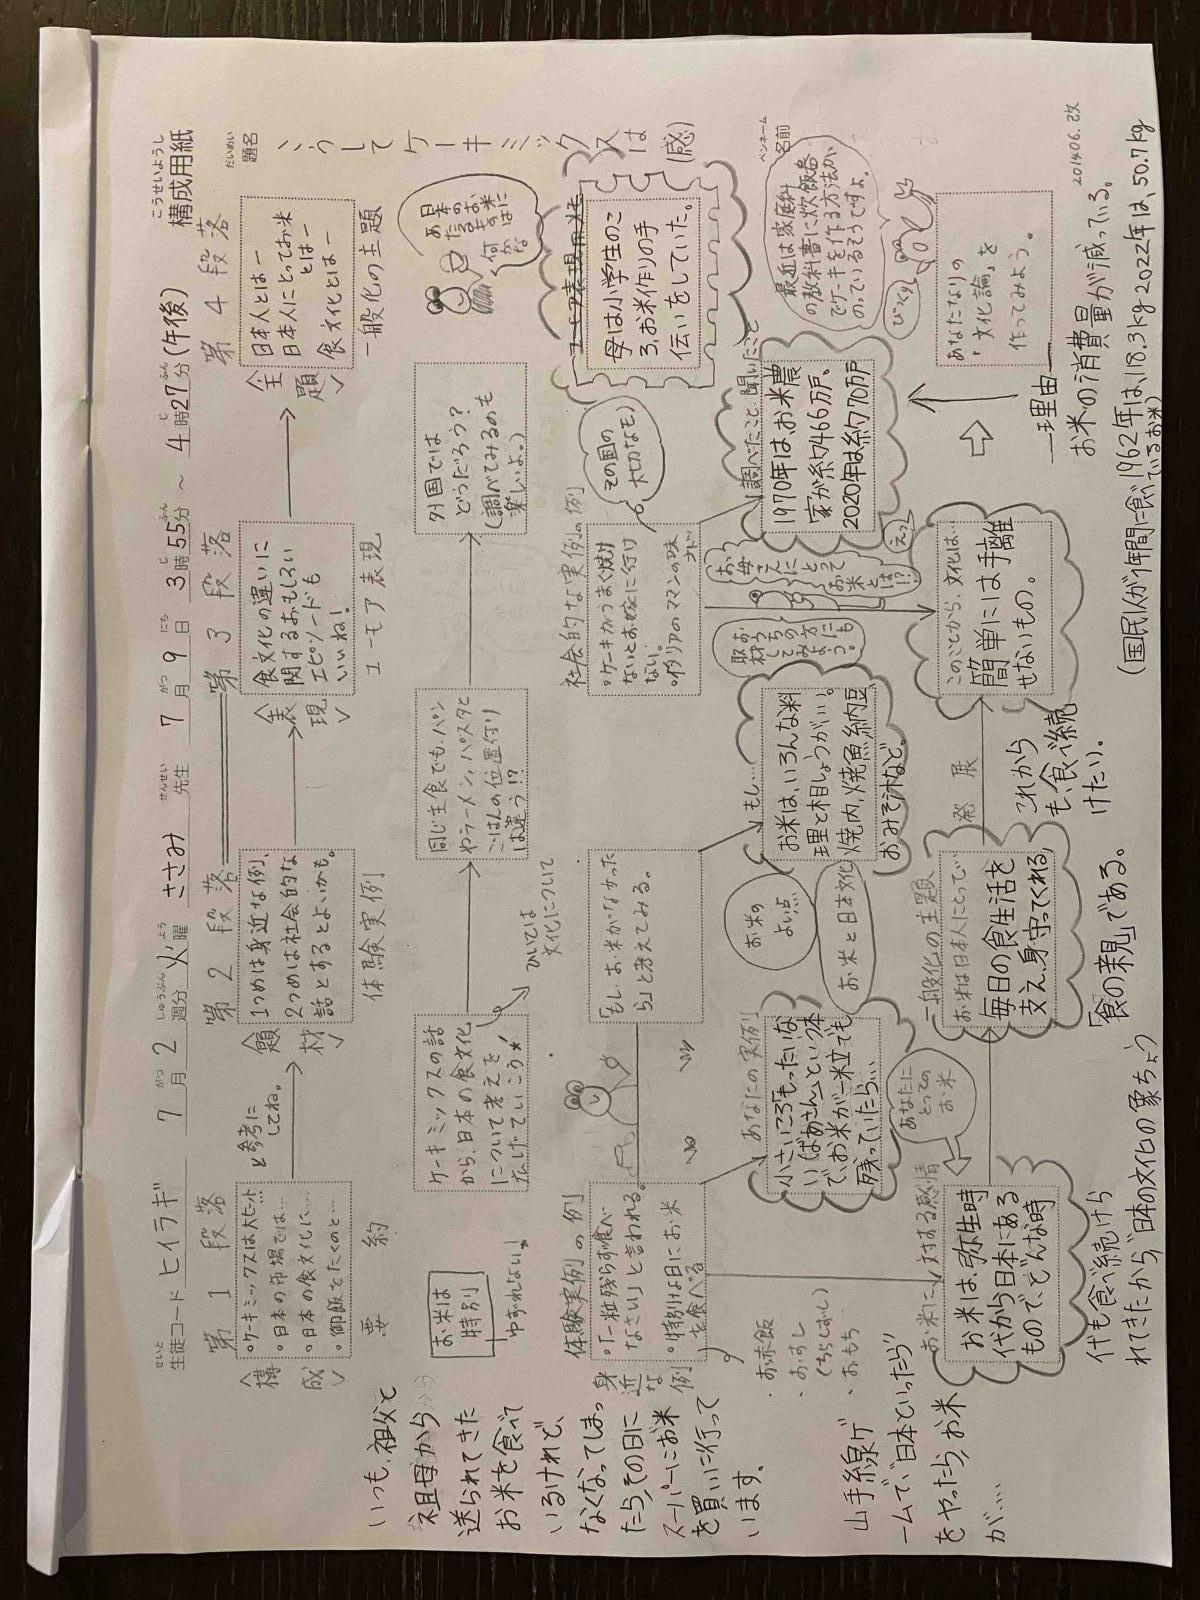 こうせいようし
構成用紙
せいと
生徒コード ヒイラギ 7月 2週分 火曜 ささみ 先生 7月 9日 3時55分 ~ 4時27分(午後)
だいめい
題名
こうしてケーキミックスは(感)
ペンネーム
名前
第1段落
第2段落
第3段落
第4段落
<構成>
・ケーキミックスは大ヒット
・日本の市場では…
・日本の食文化に…
・御飯をたくのと…
要約
と参考に
してね。
<題材>
1つめは身近な例、
2つめは社会的な
話とするとよいかも。
体験実例
<表現>
食文化の違いに
関するおもしろい
エピソードも
いいね!
ユーモア表現
<主題>
日本人とはー
日本人にとってお米
とはー
食文化とはー
一般化の主題
お米は
特別
ゆずれない!
ケーキミックスの話
から、日本の食文化
について考えを
広げていこう★
ひいては
文化について
同じ主食でも、パン
やラーメン、パスタと
ごはんの位置付け
は違う!?
外国では
どうだろう?
(調べてみるのも
楽しいよ。)
日本の
お米は
何かな
体験実例の例
身近な例
・「一粒残らず食べ
なさい」と言われる。
・特別な日にお米
を食べる
・お赤飯
・おすし
(ちらしずし)
・おもち
「もし、お米がなかった
ら」と考えてみる。
社会的な実例の例
・ケーキがうまく焼け
ないとお嫁に行け
ない。
・イタリアのママンの味
その国の
大切なもの
ユーモア表現用メモ
母は小学生のこ
ろ、お米作りの手
伝いをしていた。
いつも、祖父と
祖母から
送られてきた
お米を食べて
いるけれど、
なくなってしまっ
たら、その日に
スーパーにお米
を買いに行って
います。
あなたの実例
小さいころ「もったいな
いばあさん」という本
で、お米が一粒でも
残っていたら…
お米の
よい点
お米と日本文化
もし…
お米は、いろんな料
理と相しょうがいい。
焼肉、焼魚、納豆、
おみそ汁など。
おうちの方にも
取材してみよう。
お母さんに
とって
お米とは!?
えっ
調べたこと、聞いたこと
1970年は、お米農
家が約466万戸、
2020年は約70万戸
最近は家庭科
の教科書に炊飯器
でケーキを作る方法が、
のっているそうですよ。
びっくり
山手線ゲ
ームで、"日本といったら"
をやったら、お米
が……
お米に対する感情
お米は、弥生時
代から日本にある
もので、どんな時
代も食べ続けら
れてきたから「日本の文化の象ちょう」
あなたに
とっての
お米
一般化の主題
お米は日本人にとって…
毎日の食生活を
支え、身守ってくれる、
「食の親」である。
発展
これから
も、食べ続
けたい。
このことから、文化は…
簡単には手離
せないもの。
あなたなりの
「文化論」を
作ってみよう。
理由
お米の消費量が減っている。
(国民1人が1年間に食べているお米)
1962年は、118.3kg 2022年は、50.7kg
201406.改